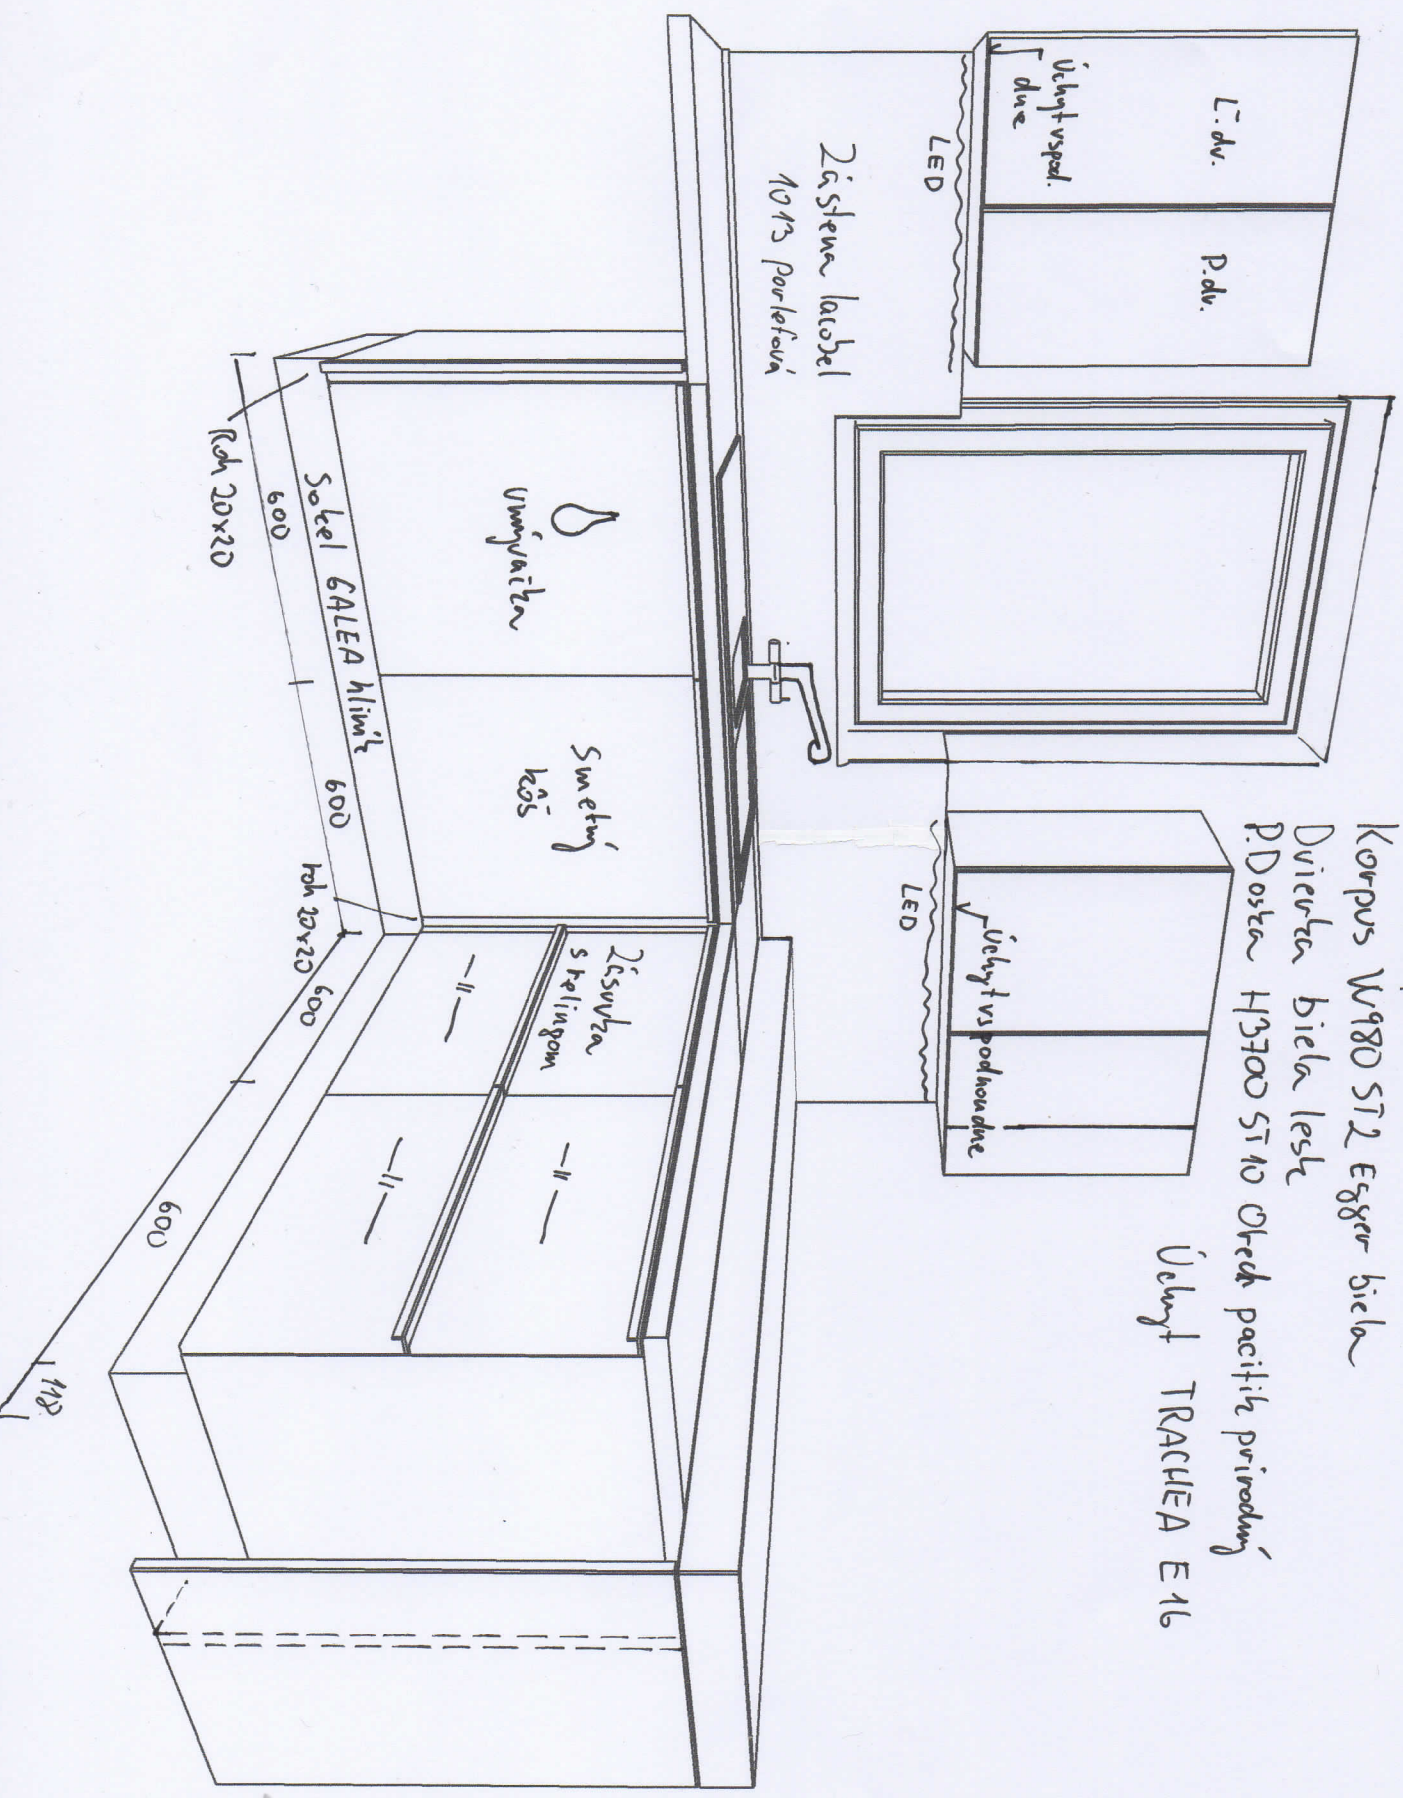 Korpus W980 ST2 Egger biela
Dvierka biela lesk
P.Doska H3700 ST10 Orech pacifik prírodný
Úchyt TRACHEA E16
Ľ.dv.
P.dv.
Úchyt v spod.
dne
LED
Zástena lacobel
1013 perleťová
LED
Úchyt v spodnom dne
umývačka
Smetný
kôš
Zásuvka
s relingom
-||-
-||-
-||-
Sokel GALEA hliník
Roh 20x20
600
600
roh 20x20
600
600
118